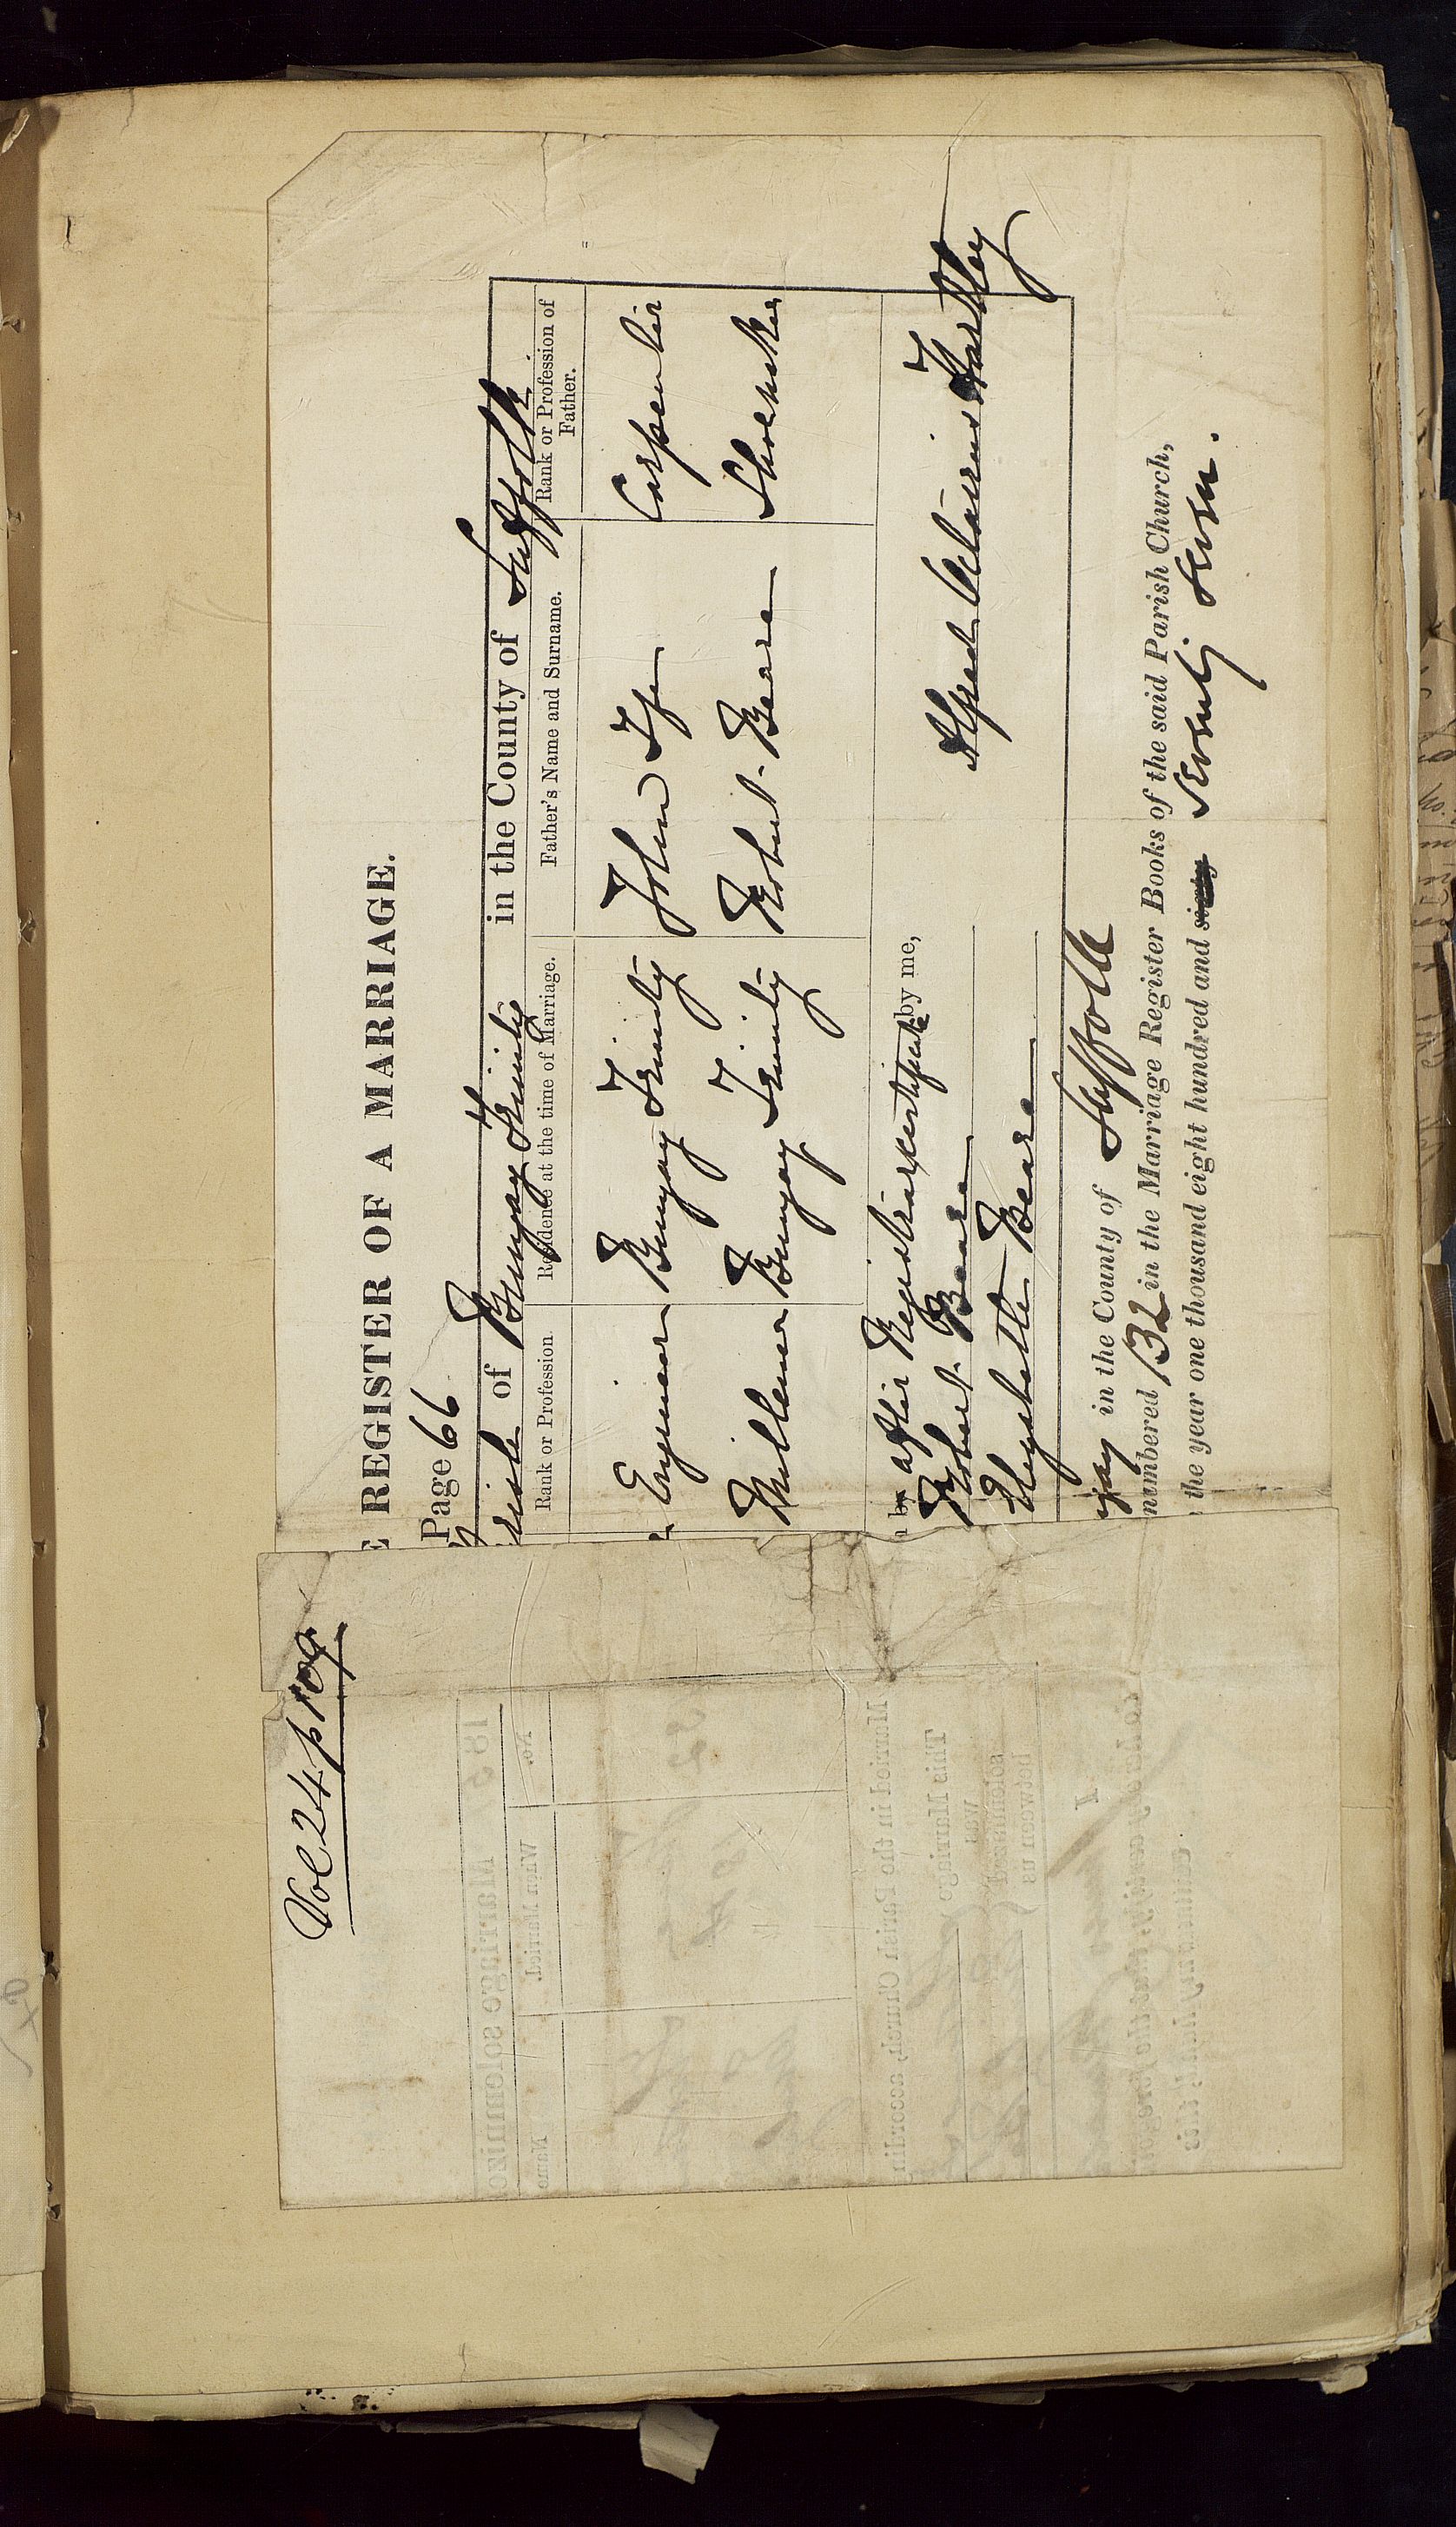 Vol 24 p 109
E REGISTER OF A MARRIAGE.
Page 66
Parish of Bungay Trinity in the County of Suffolk
Rank or Profession. Residence at the time of Marriage. Father's Name and Surname. Rank or Profession of Father.
Engineer Bungay Trinity John Ife Carpenter
Milliner Bungay Trinity Robert Beare Shoemaker
by after Registrar certificate by me,
Robert Beare Alfred Octavius Hartley
Elizabeth Beare
gay in the County of Suffolk
numbered 132 in the Marriage Register Books of the said Parish Church,
the year one thousand eight hundred and sixty Seventy Seven.